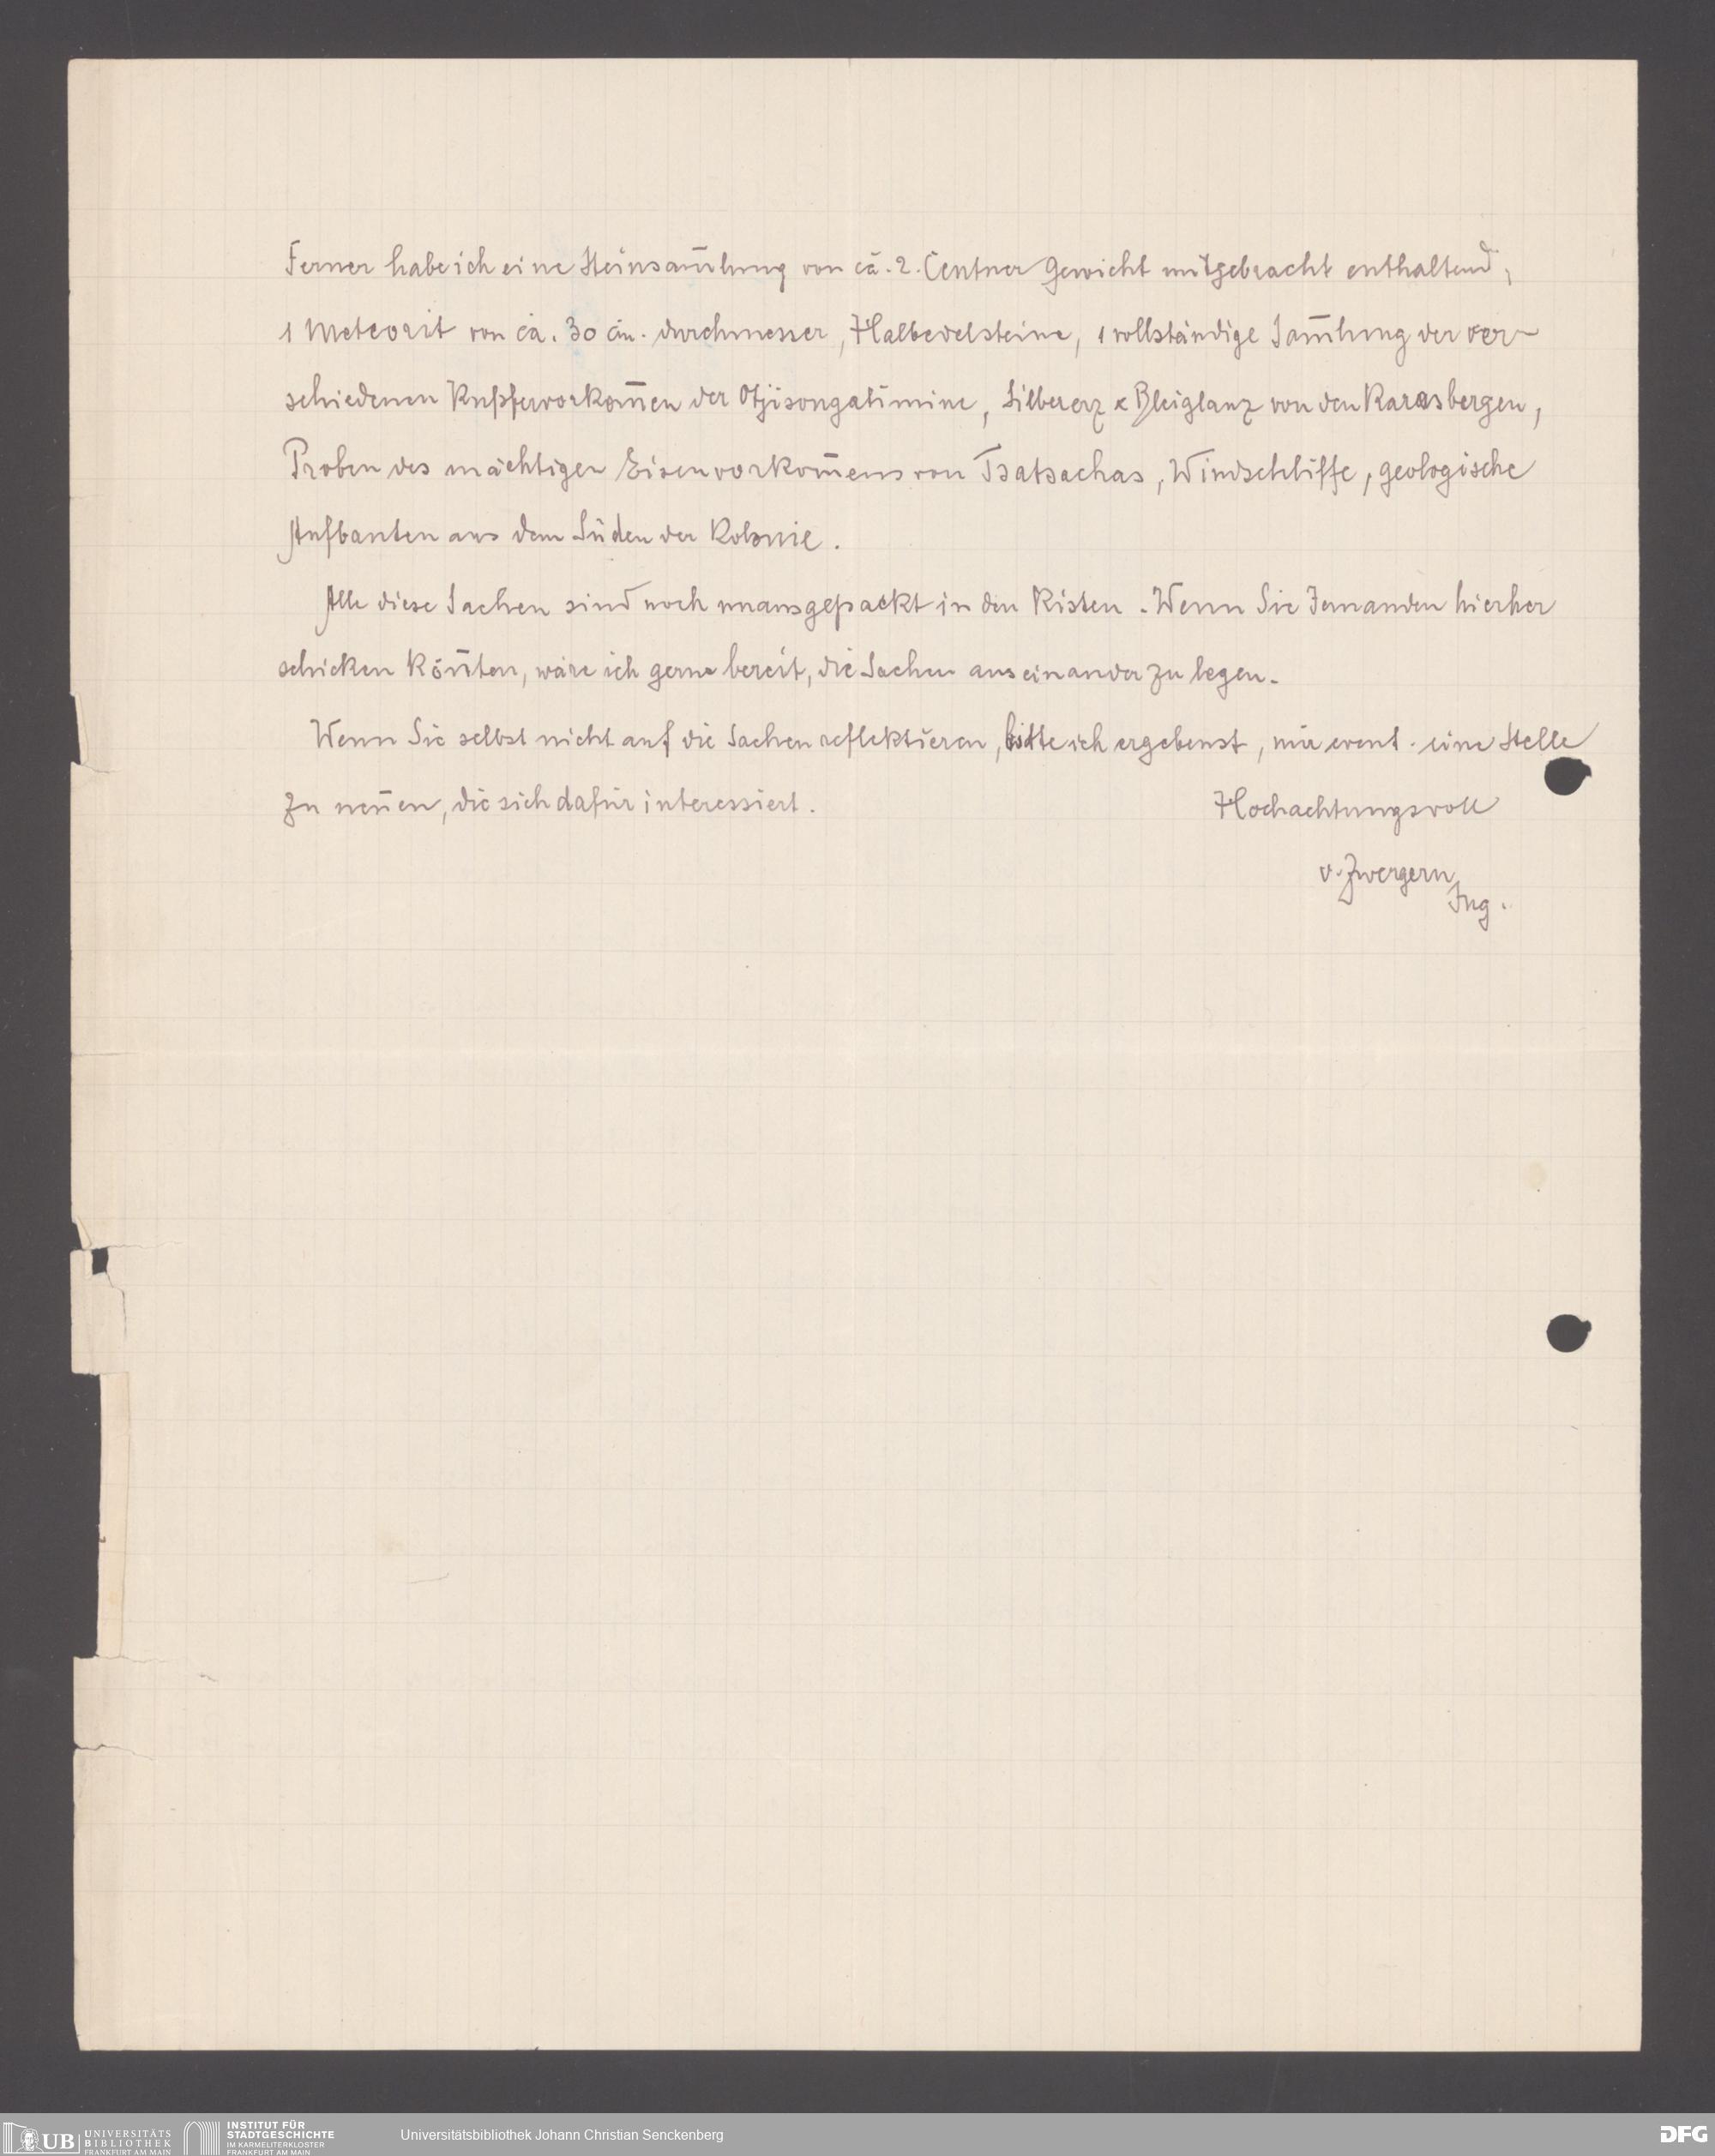 Ferner habe ich eine Steinsam̄lung von ca. 2. Centner Gewicht mitgebracht enthaltend,
1 Meteorit von ca. 30 cm. durchmesser, Halbedelsteine, 1 vollständige Sam̄lung der ver-
schiedenen Kupfervorkom̄en der Otjisongatimine, Silbererz & Bleiglanz von den Karasbergen,
Proben des mächtigen Eisenvorkom̄ens von Tsatsachas, Windschliffe, geologische
Aufbauten aus dem Süden der Kolonie.
Alle diese Sachen sind noch unausgepackt in den Kisten. Wenn Sie Jemanden hierher
schicken kön̄ten, wäre ich gerne bereit, die Sachen auseinander zu legen.
Wenn Sie selbst nicht auf die Sachen reflektieren, bitte ich ergebenst, mir event. eine Stelle
zu nen̄en, die sich dafür interessiert.
Hochachtungsvoll
v. Zwergern
Ing.
UB UNIVERSITÄTS
BIBLIOTHEK
FRANKFURT AM MAIN
INSTITUT FÜR
STADTGESCHICHTE
IM KARMELITERKLOSTER
FRANKFURT AM MAIN
Universitätsbibliothek Johann Christian Senckenberg
DFG